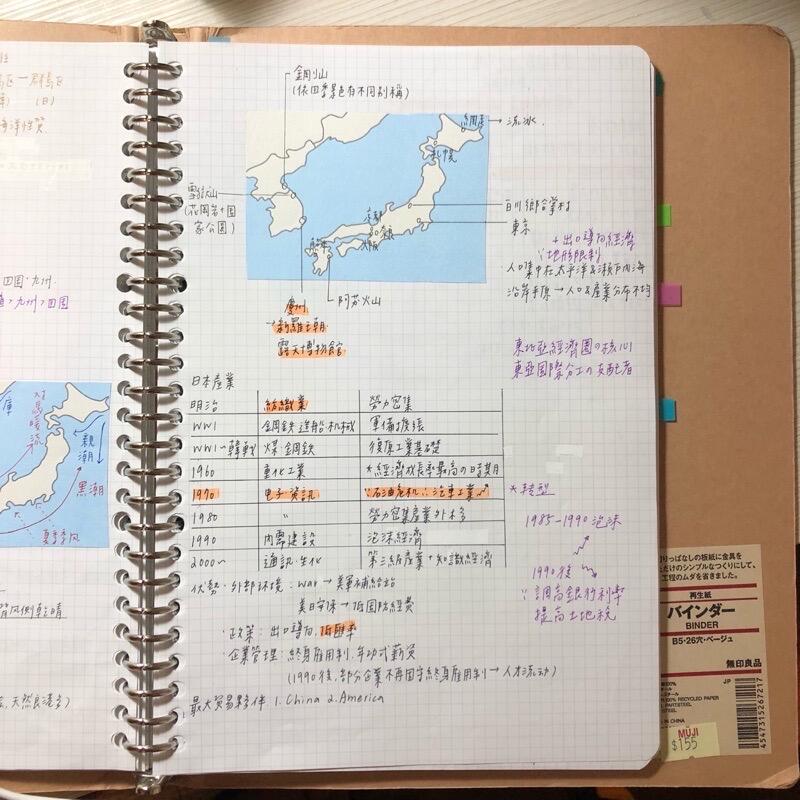 金剛山
(依四季景色有不同別稱)
網走
流冰
札幌
雪嶽山
(花崗岩+國
家公園)
白川鄉合掌村
京都
東京
大阪
+出口導向經濟
∵地形限制
人口集中在太平洋&瀨戶內海
沿岸平原→人口&產業分布不均
阿苏火山
慶州
→新羅王朝
露天博物館
東北亞經濟圈の核心
東亞國際分工の支配者
日本產業
明治 紡織業 勞力密集
WWI 鋼鉄.造船.机械 軍備擴張
WWI~韓戰 煤.鋼鉄 復原工業基礎
1960 重化工業 *經濟成長率最高の時期
1970 电子.資訊 ∵石油危机∴汽車工業
1980 〃 勞力密集產業外移
1990 內需建設 泡沫經濟
2000~ 通訊.生化 第三級產業+知識經濟
*轉型
1985-1990泡沫
1990後
∵調高銀行利率
提高土地稅
优勢.外部环境:war→美軍補給站
美日安保→低國防經費
.政策:出口導向,低匯率
.企業管理:終身雇用制,年功式薪資
(1990後,部分企業不再固守終身雇用制→人才流动)
最大貿易夥伴 1.China 2.America
四国.九州
九州>四国
对馬暖流
親潮
黑潮
夏季风
背风側乾晴
天然良港多)
再生紙
バインダー
BINDER
B5・26穴・ベージュ
無印良品
JP
4547315267217
MUJI
$155